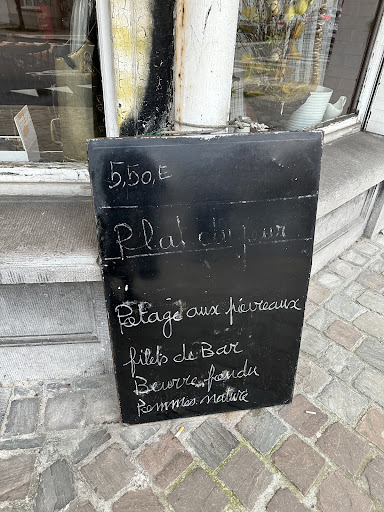 5,50,E
Plat du jour
Potage aux piévreaux
filets de Bar
Beurre fondu
Pommes nature